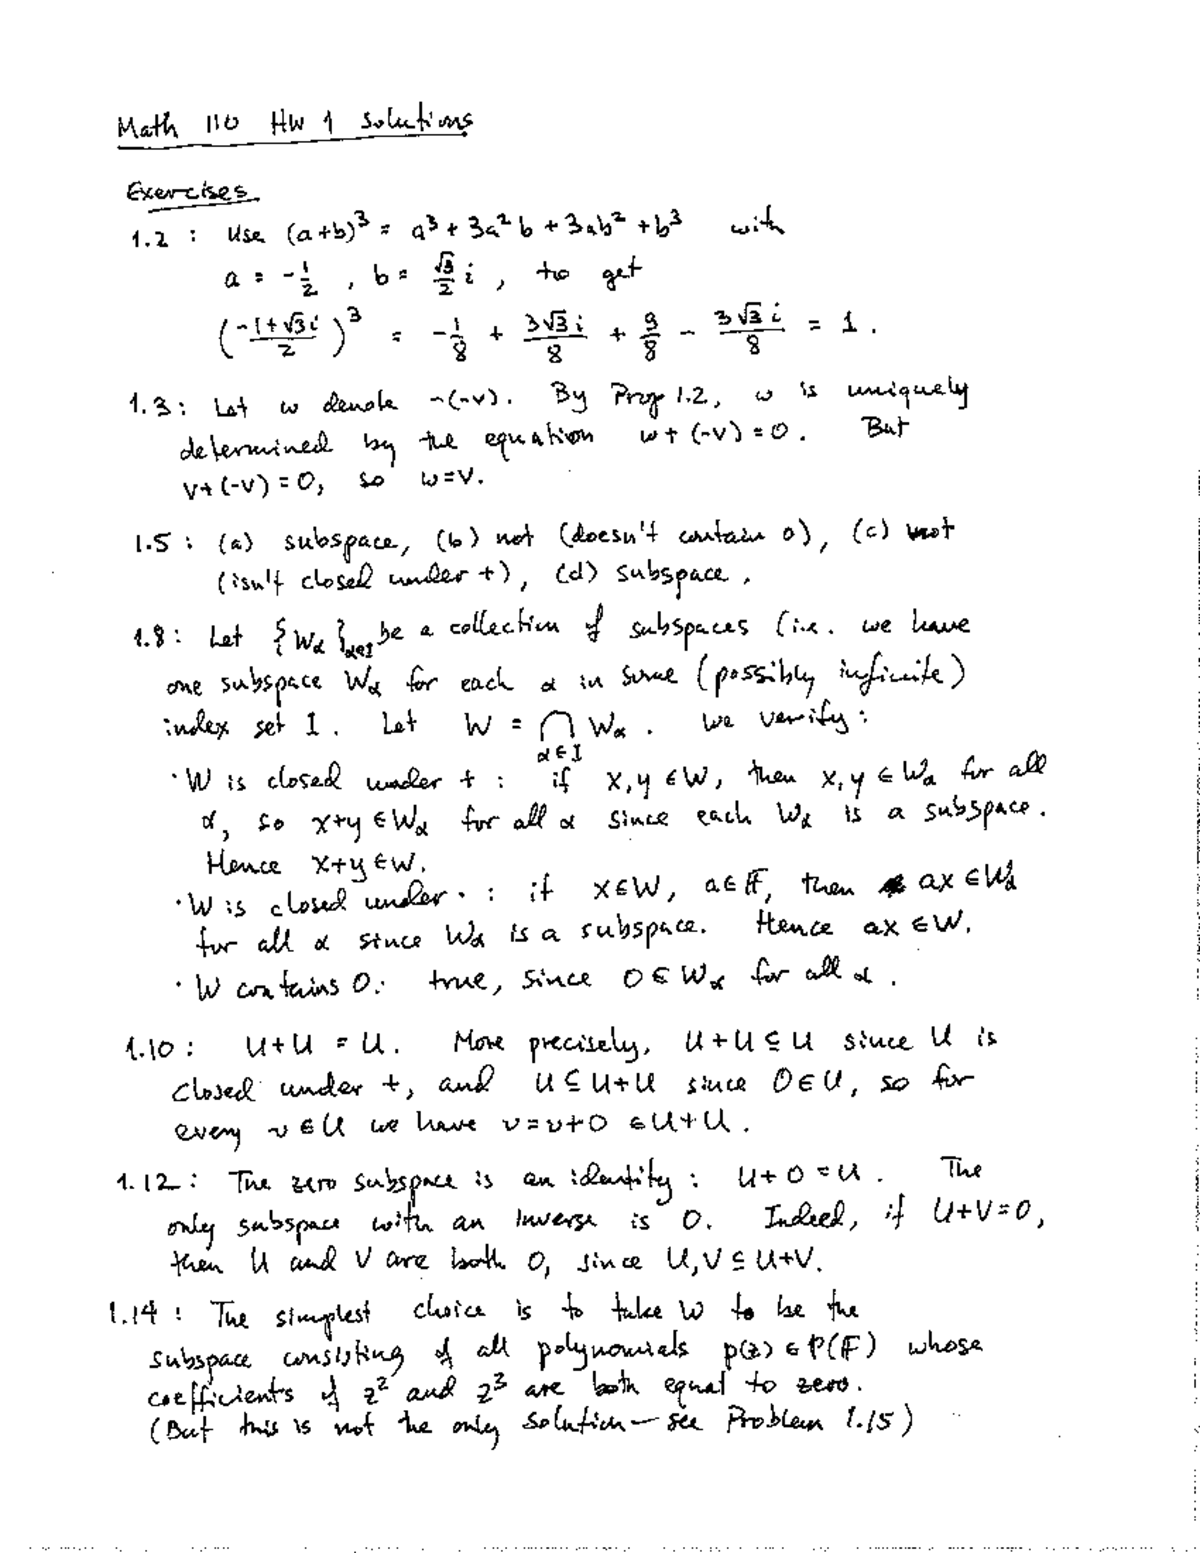 Math 110 HW 1 Solutions
Exercises
1.2 : Use (a+b)³ = a³ + 3a²b + 3ab² + b³ with
a = -1/2 , b = √3/2 i , to get
((-1+√3i)/2)³ = -1/8 + 3√3i/8 + 9/8 - 3√3i/8 = 1 .
1.3 : Let w denote -(-v). By Prop 1.2, w is uniquely
determined by the equation w+(-v)=0. But
v+(-v)=0, so w=v.
1.5 : (a) subspace, (b) not (doesn't contain 0), (c) not
(isn't closed under +), (d) subspace.
1.8 : Let {Wα}α∈I be a collection of subspaces (i.e. we have
one subspace Wα for each α in some (possibly infinite)
index set I. Let W = ∩ Wα . We verify :
α∈I
· W is closed under + : if x,y ∈ W, then x,y ∈ Wα for all
α, so x+y ∈ Wα for all α since each Wα is a subspace.
Hence x+y ∈ W.
· W is closed under · : if x∈W, a∈𝔽, then ax ∈ Wα
for all α since Wα is a subspace. Hence ax ∈ W.
· W contains 0: true, since 0 ∈ Wα for all α .
1.10 : U+U = U. More precisely, U+U ⊆ U since U is
closed under +, and U ⊆ U+U since 0∈U, so for
every v ∈ U we have v = v+0 ∈ U+U.
1.12 : The zero subspace is an identity : U+0=U. The
only subspace with an inverse is 0. Indeed, if U+V=0,
then U and V are both 0, since U,V ⊆ U+V.
1.14 : The simplest choice is to take W to be the
subspace consisting of all polynomials p(z) ∈ P(𝔽) whose
coefficients of z² and z³ are both equal to zero.
(But this is not the only solution — see Problem 1.15)